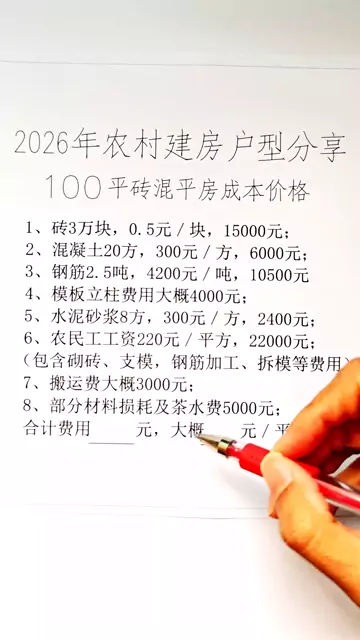 2026年农村建房户型分享
100平砖混平房成本价格
1、砖3万块，0.5元/块，15000元；
2、混凝土20方，300元/方，6000元；
3、钢筋2.5吨，4200元/吨，10500元
4、模板立柱费用大概4000元；
5、水泥砂浆8方，300元/方，2400元；
6、农民工工资220元/平方，22000元；
（包含砌砖、支模，钢筋加工、拆模等费用）
7、搬运费大概3000元；
8、部分材料损耗及茶水费5000元；
合计费用____元，大概 元/平